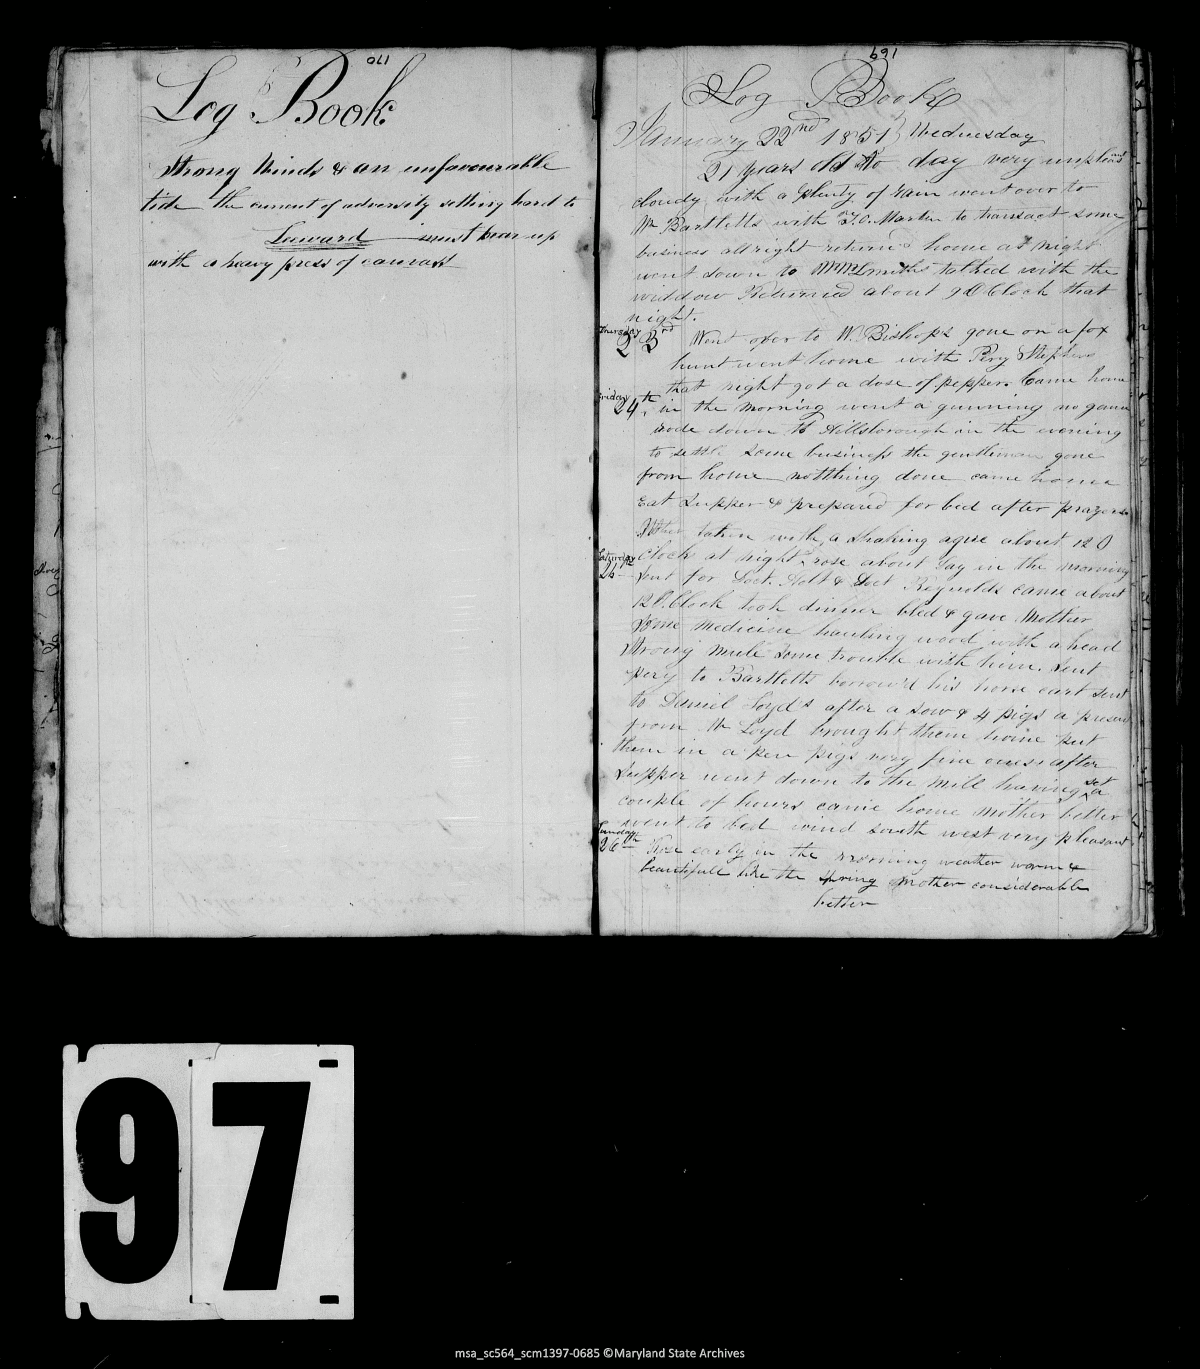 170
Log Book
Strong Winds & an unfavourable
tide the current of adversity setting hard to
Leeward must bear up
with a heavy press of canvast
169
Log Book
January 22nd 1851 Wednesday
21 years old to day very unpleasant
cloudy with a plenty of rain went over to
Wm Bartletts with T.C. Martin to transact some
business all right returned home at night
went down to Smiths talked with the
widdow Returned about 9 O Clock that
night.
Thursday
23rd Went over to W. Bishops gone on a fox
hunt went home with Pery Stephens
that night got a dose of pepper. Came home
Friday
24th in the morning went a gunning no game
rode down to Hillsborough in the evening
to settle some business the gentleman gone
from home nothing done came home
Eat Supper & prepared for bed after prayers
Mother taken with a shaking ague about 12 O
Saturday
Clock at night rose about day in the morning
Sent for Doct. Holt & Doct Reynolds came about
12 O.Clock took dinner bled & gave Mother
some medicine hauling wood with a head
strong mule some trouble with him. Sent
pery to Bartletts borrow'd his horse cart sent
to Daniel Loyds after a sow & 4 pigs a present
from Mr Loyd brought them home put
them in a pen pigs very fine ones after
Supper went down to the Mill having set a
couple of hours came home mother better
went to bed wind south west very pleasant
Sunday
26th Rose early in the morning weather warm &
beautifull like the spring mother considerable
better
97
msa_sc564_scm1397-0685 ©Maryland State Archives